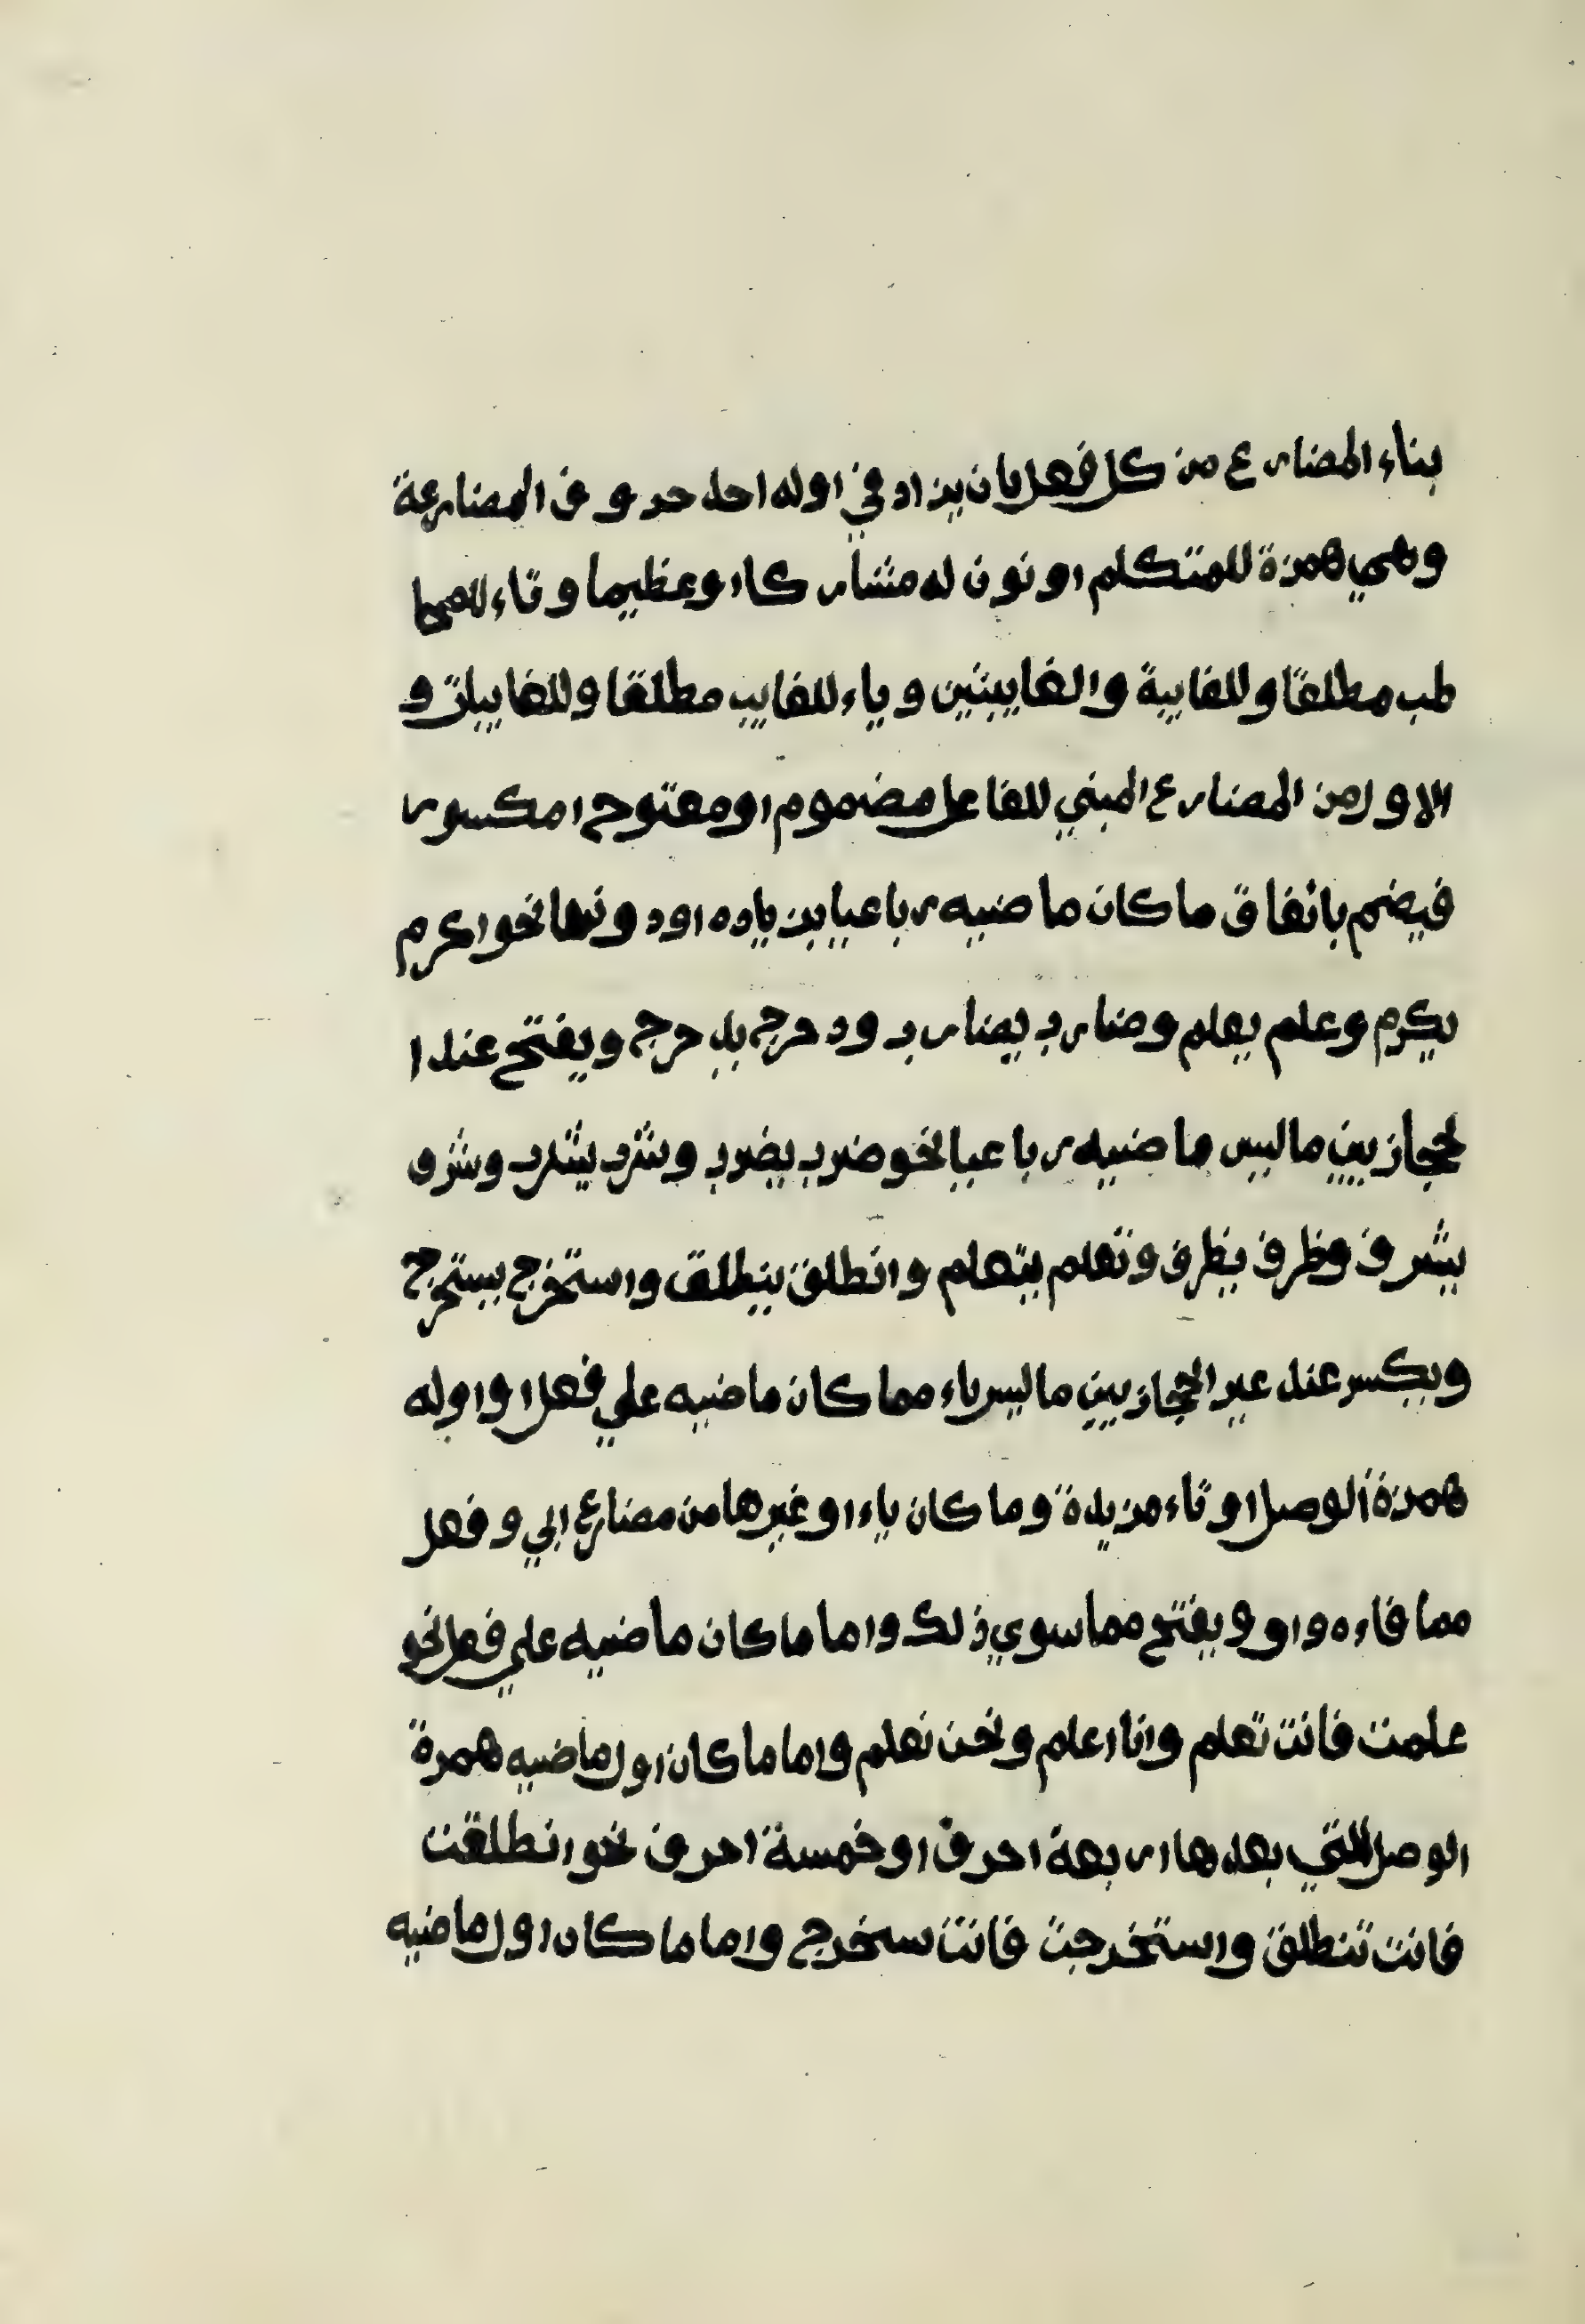 بناء المضارع من كل فعل بان يزاد في اوله احد حروف المضارعة
وهي همزة للمتكلم او نون له مشاركا او عظيما وتاء للمخا
طب مطلقا وللغايبة والغايبتين وياء للغايب مطلقا وللغايبات و
الاول من المضارع المبني للفاعل مضموم او مفتوح ا مكسور
فيضم باتفاق ما كان ماضيه رباعيا بزياده او دونها نحو اكرم
يكرم وعلم يعلم وضارب يضارب ودحرج يدحرج ويفتح عند ا
لحجازيين ما ليس ماضيه رباعيا نحو ضرب يضرب وشرب يشرب وشرف
يشرف وظرف يظرف وتعلم يتعلم وانطلق ينطلق واستخرج يستخرج
ويكسر عند غير الحجازيين ما ليس ياء مما كان ماضيه علي فعل او اوله
همزة الوصل او تاء مزيدة وما كان ياء او غيرها من مضارع ابي وفعل
مما فاءه واو ويفتح مما سوي ذلك واما ما كان ماضيه علي فعل نحو
علمت فانت تعلم وانا اعلم ونحن نعلم واما ما كان اول ماضيه همزة
الوصل التي بعدها اربعة احرف او خمسة احرف نحو انطلقت
فانت تنطلق واستخرجت فانت ستخرج واما ما كان اول ماضيه